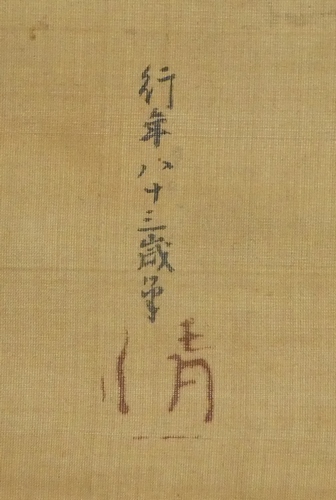 行年八十三歳筆
情